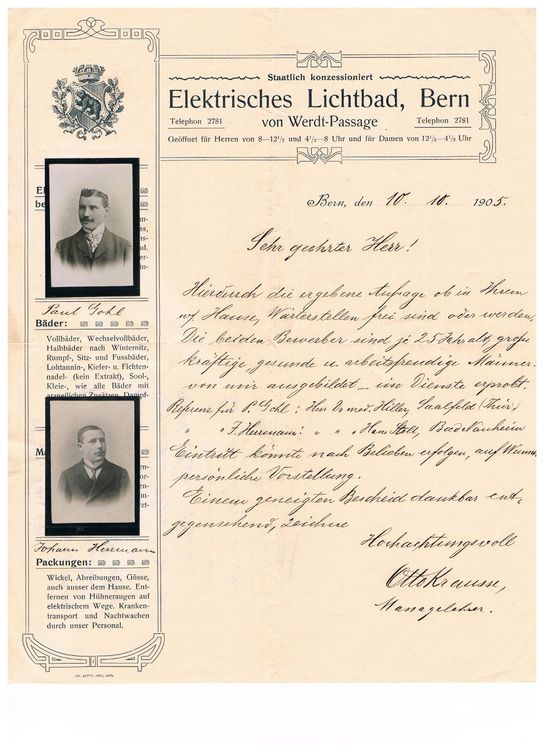 Staatlich konzessioniert
Elektrisches Lichtbad, Bern
Telephon 2781 von Werdt-Passage Telephon 2781
Geöffnet für Herren von 8—12½ und 4½—8 Uhr und für Damen von 12½—4½ Uhr
Bern, den 10. 10. 1905.
Sehr geehrter Herr!
Hierdurch die ergebene Anfrage ob in Ihrem
w/ Hause, Wärterstellen frei sind oder werden.
Die beiden Bewerber sind je 25 Jahr alt, große
kräftige gesunde u. arbeitsfreudige Männer
von mir ausgebildet – im Dienste erprobt.
Referenz für P. Gohl; Herr Dr med. Hiller, Saalfeld (Thür)
" " J. Herrmann: " " Hans Stoll, Bad Nauheim
Eintritt könnte nach Belieben erfolgen, auf Wunsch
persönliche Vorstellung.
Einem geneigten Bescheid dankbar ent-
gegensehend, zeichne
Hochachtungsvoll
Otto Krausse,
Paul Gohl
Bäder:
Vollbäder, Wechselvollbäder,
Halbbäder nach Winternitz,
Rumpf-, Sitz- und Fussbäder,
Lohtannin-, Kiefer- u. Fichten-
nadel- (kein Extrakt), Sool-,
Kleie-, wie alle Bäder mit
arzneilichen Zusätzen, Dampf-
Johann Herrmann
Packungen:
Wickel, Abreibungen, Güsse,
auch ausser dem Hause. Ent-
fernen von Hühneraugen auf
elektrischem Wege. Kranken-
transport und Nachtwachen
durch unser Personal.